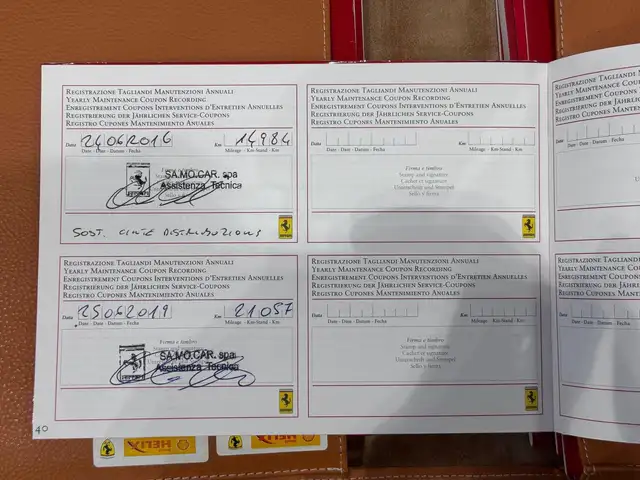 REGISTRAZIONE TAGLIANDI MANUTENZIONI ANNUALI
YEARLY MAINTENANCE COUPON RECORDING
ENREGISTREMENT COUPONS INTERVENTIONS D'ENTRETIEN ANNUELLES
REGISTRIERUNG DER JÄHRLICHEN SERVICE-COUPONS
REGISTRO CUPONES MANTENIMIENTO ANUALES
Data 24062016 Km 14984
Date - Date - Datum - Fecha Mileage - Km-Stand - Km
SA.MO.CAR. spa
Assistenza Tecnica
SOST. CINTE DISTRIBUZIONI
REGISTRAZIONE TAGLIANDI MANUTENZIONI ANNUALI
YEARLY MAINTENANCE COUPON RECORDING
ENREGISTREMENT COUPONS INTERVENTIONS D'ENTRETIEN ANNUELLES
REGISTRIERUNG DER JÄHRLICHEN SERVICE-COUPONS
REGISTRO CUPONES MANTENIMIENTO ANUALES
Data Km
Date - Date - Datum - Fecha Mileage - Km-Stand - Km
Firma e timbro
Stamp and signature
Cachet et signature
Unterschrift und Stempel
Sello y firma
REGISTRAZIONE TAGLIANDI
YEARLY MAINTENANCE
ENREGISTREMENT COUPONS
REGISTRIERUNG DER JÄHRLICHEN
REGISTRO CUPONES
Data
Date - Date - Datum - Fecha
REGISTRAZIONE TAGLIANDI MANUTENZIONI ANNUALI
YEARLY MAINTENANCE COUPON RECORDING
ENREGISTREMENT COUPONS INTERVENTIONS D'ENTRETIEN ANNUELLES
REGISTRIERUNG DER JÄHRLICHEN SERVICE-COUPONS
REGISTRO CUPONES MANTENIMIENTO ANUALES
Data 25062019 Km 21057
Date - Date - Datum - Fecha Mileage - Km-Stand - Km
Firma e timbro
SA.MO.CAR. spa
Assistenza Tecnica
REGISTRAZIONE TAGLIANDI MANUTENZIONI ANNUALI
YEARLY MAINTENANCE COUPON RECORDING
ENREGISTREMENT COUPONS INTERVENTIONS D'ENTRETIEN ANNUELLES
REGISTRIERUNG DER JÄHRLICHEN SERVICE-COUPONS
REGISTRO CUPONES MANTENIMIENTO ANUALES
Data Km
Date - Date - Datum - Fecha Mileage - Km-Stand - Km
Firma e timbro
Stamp and signature
Cachet et signature
Unterschrift und Stempel
Sello y firma
REGISTRAZIONE TAGLIANDI
YEARLY MAINTENANCE
ENREGISTREMENT COUPONS
REGISTRIERUNG DER JÄHRLICHEN
REGISTRO CUPONES
Data
Date - Date - Datum - Fecha
40
HELIX
HELIX